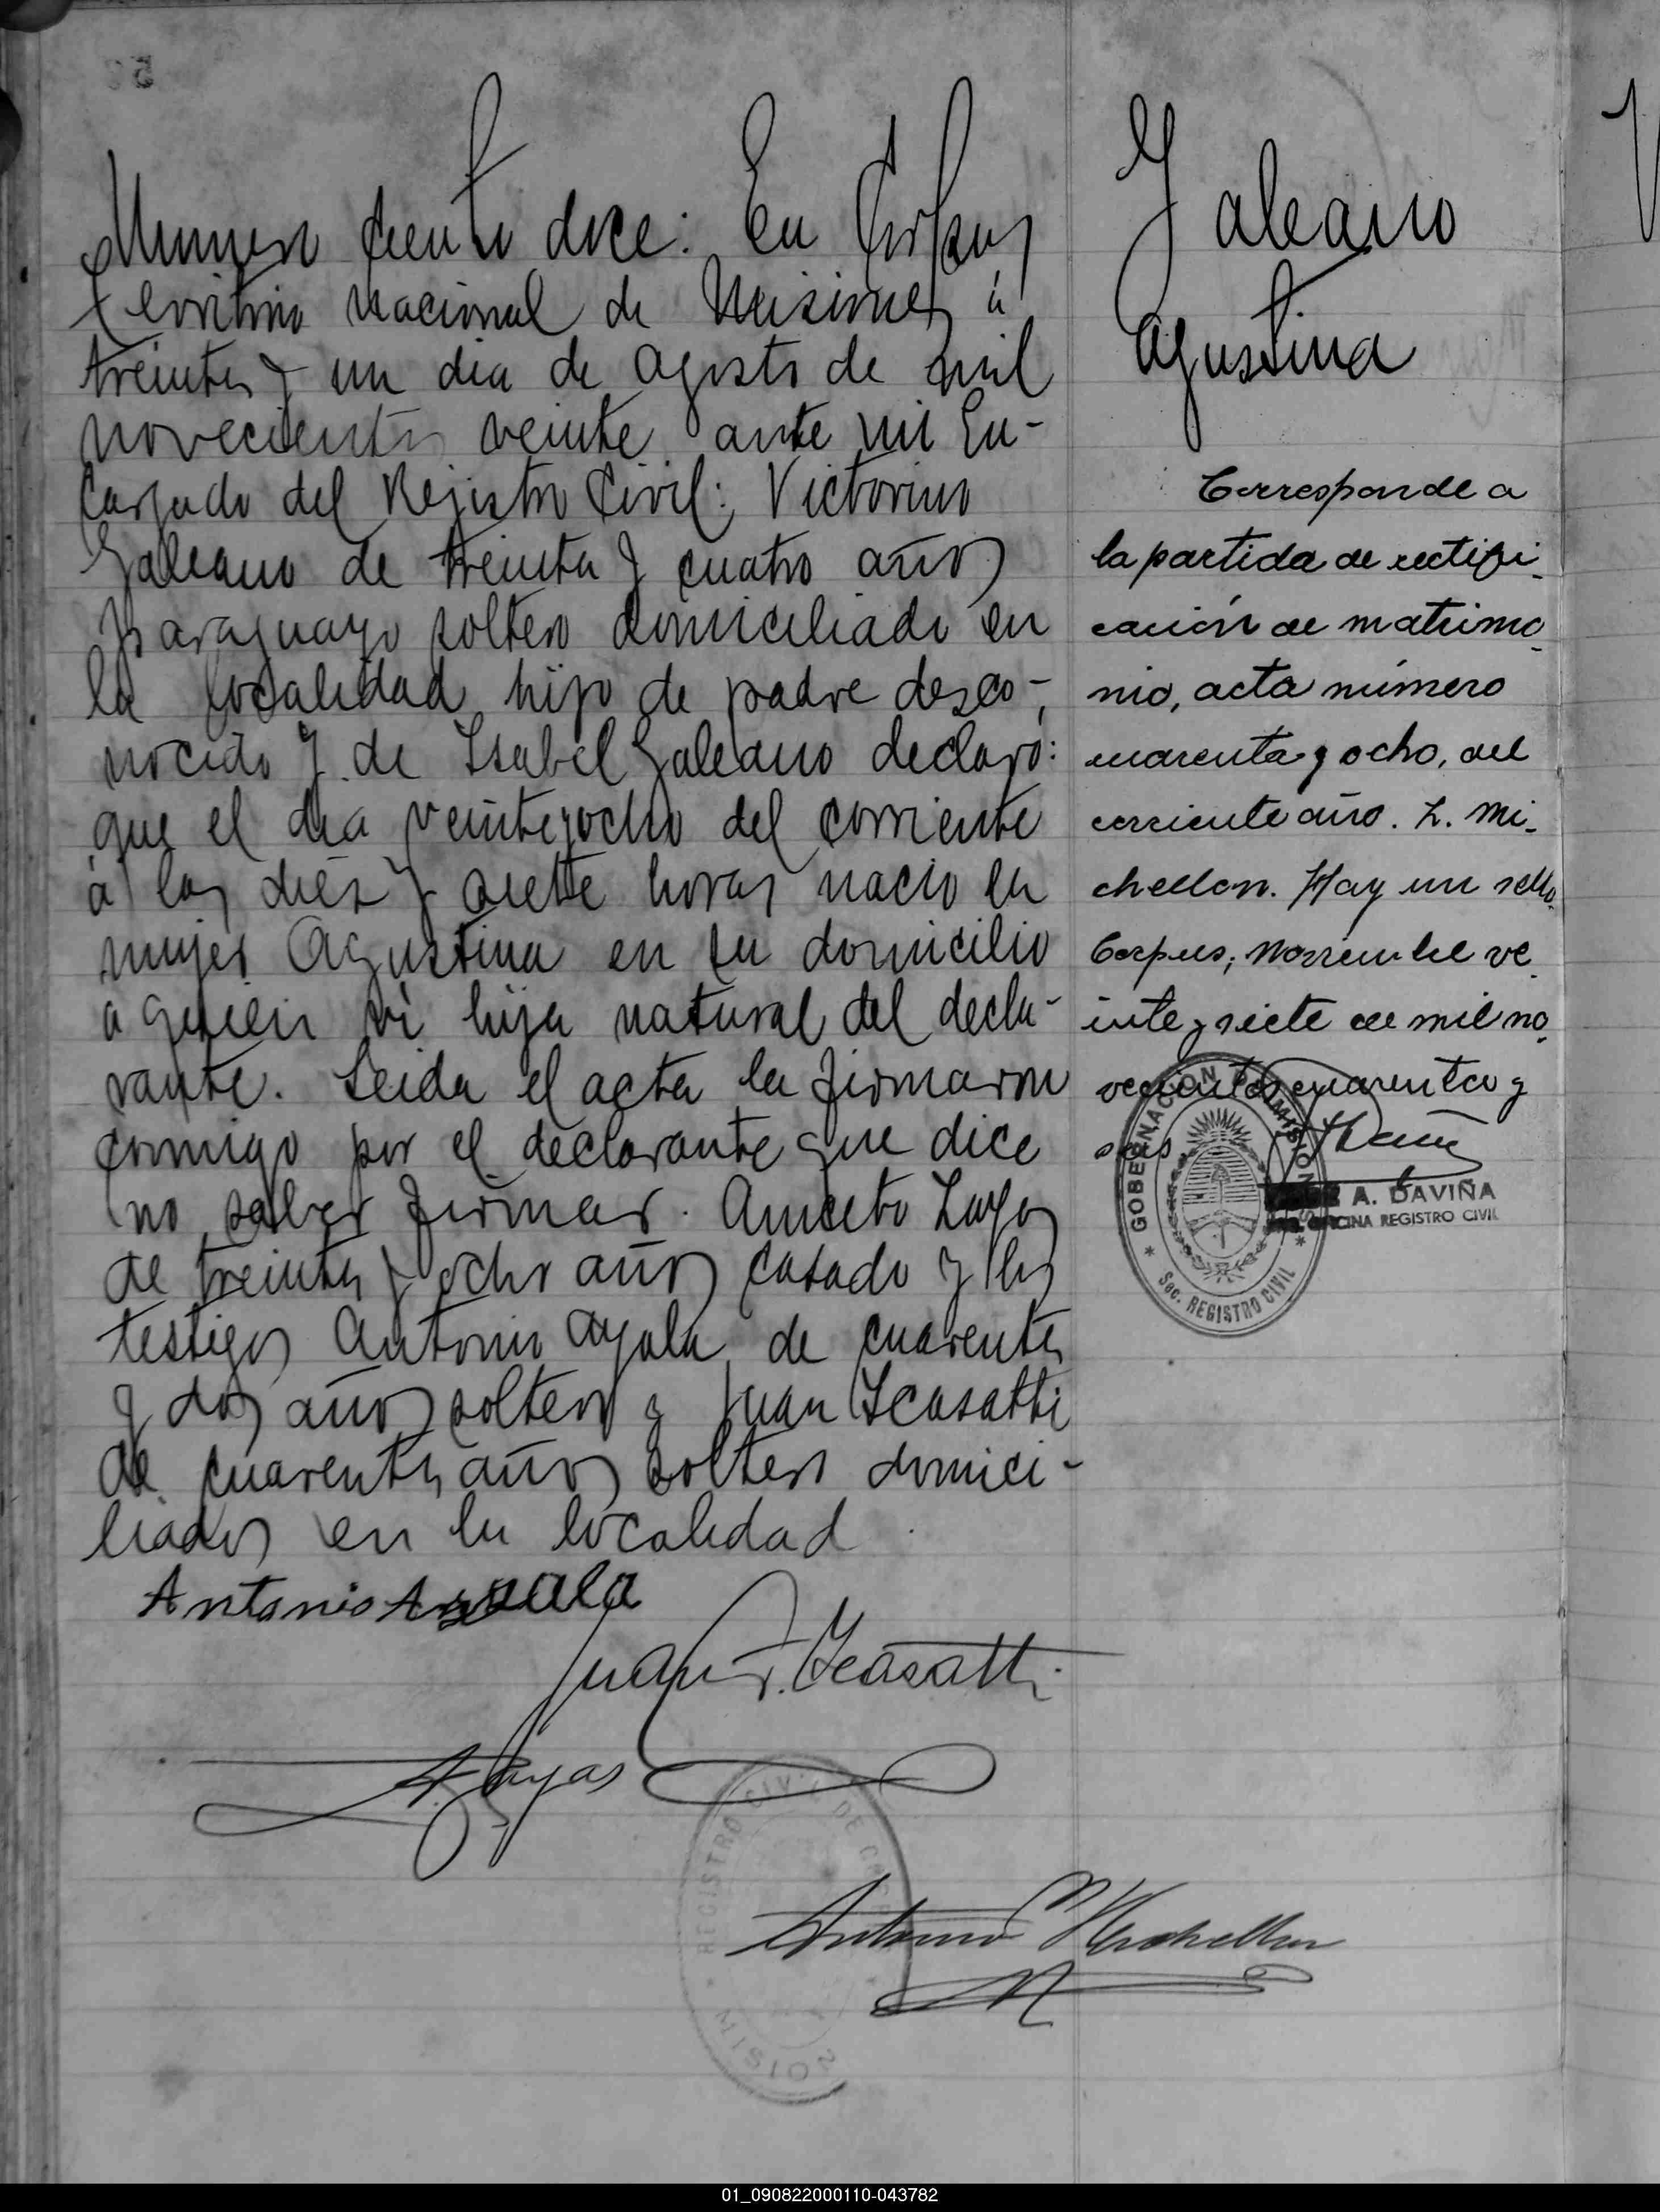 Numero ciento doce: En Corpus
Territorio Nacional de Misiones á
treinta y un dia de Agosto de mil
novecientos veinte ante mi En-
cargado del Rejistro Civil: Victorino
Galeano de treinta y cuatro años
paraguayo soltero domiciliado en
la localidad hijo de padre desco-
nocido y de Isabel Galeano declaró:
que el dia veinteyocho del corriente
á las diez y siete horas nacio la
mujer Agustina en su domicilio
a quien vi hija natural del decla-
rante. Leida el acta la firmaron
conmigo por el declarante que dice
no saber firmar. Aniceto Layas
de treinta y ocho años casado y los
testigos Antonio Ayala de cuarenta
y dos años soltero y Juan Scasatti
de cuarenta años soltero domici-
liados en la localidad
Antonio Ayala
Juan Scasatti
A. Layas
REGISTRO CIVIL DE
Antonio
Galeano
Agustina
Corresponde a
la partida de rectifi-
cación de matrimo-
nio, acta número
cuarenta y ocho, del
corriente año. L. Mi-
chellon. Hay un sello.
Corpus, Noviembre ve
inte y siete de mil no-
vecientos cuarenta y
seis
GOBERNACION DE MISIONES
Sec. REGISTRO CIVIL
A. DAVIÑA
OFICINA REGISTRO CIVIL
01_090822000110-043782